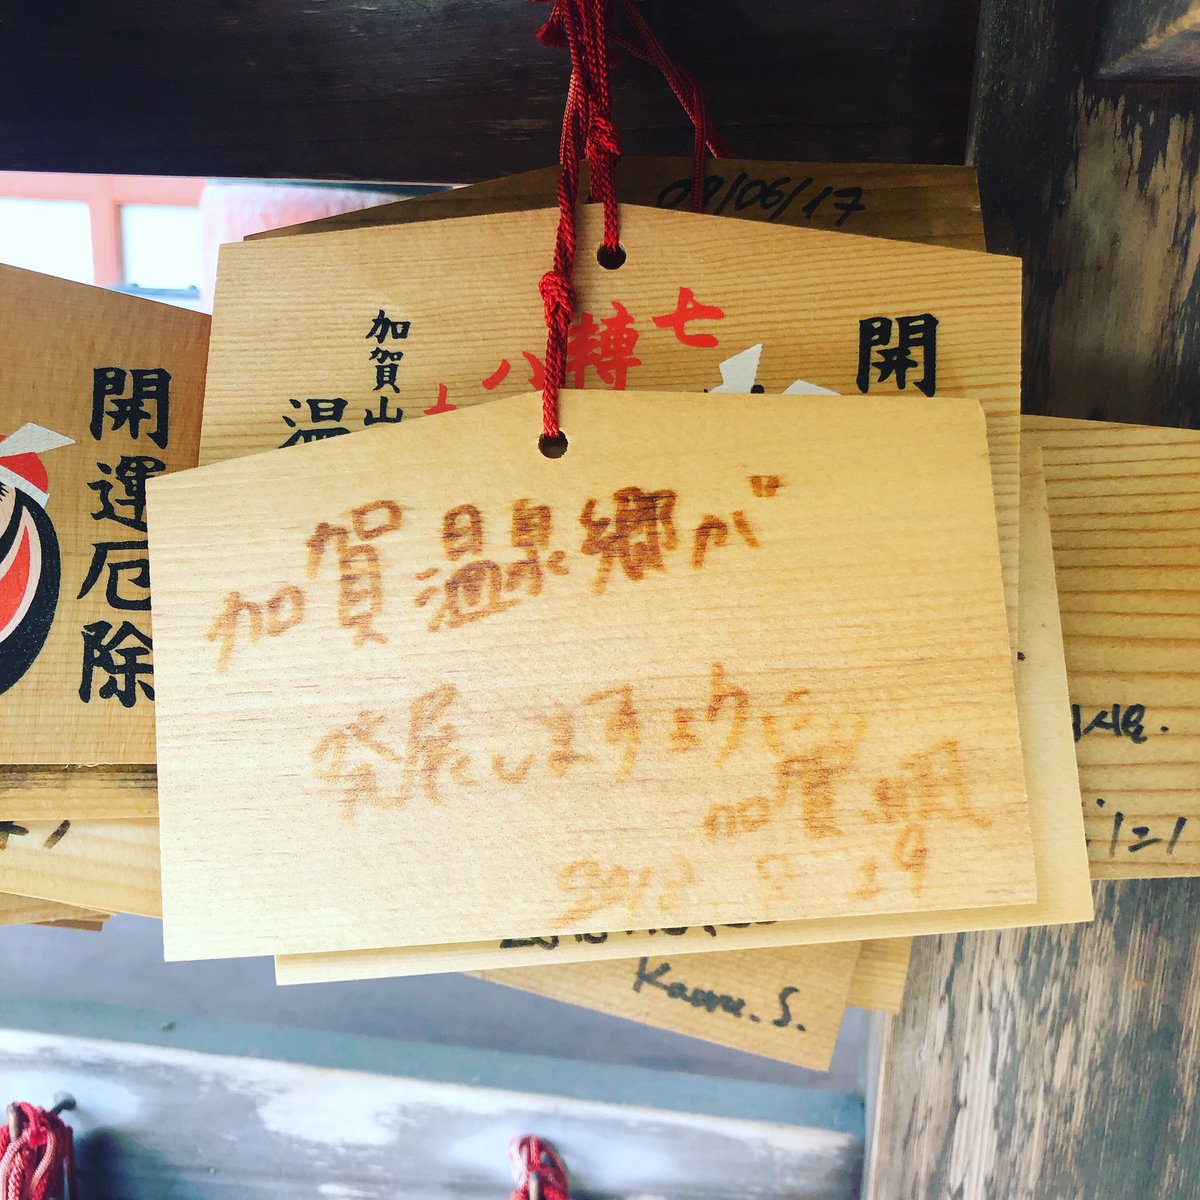 08/06/17
開
七
轉
八
加賀山
温
開運厄除
加賀温泉郷が
発展しますように
加賀
Kaoru.S.